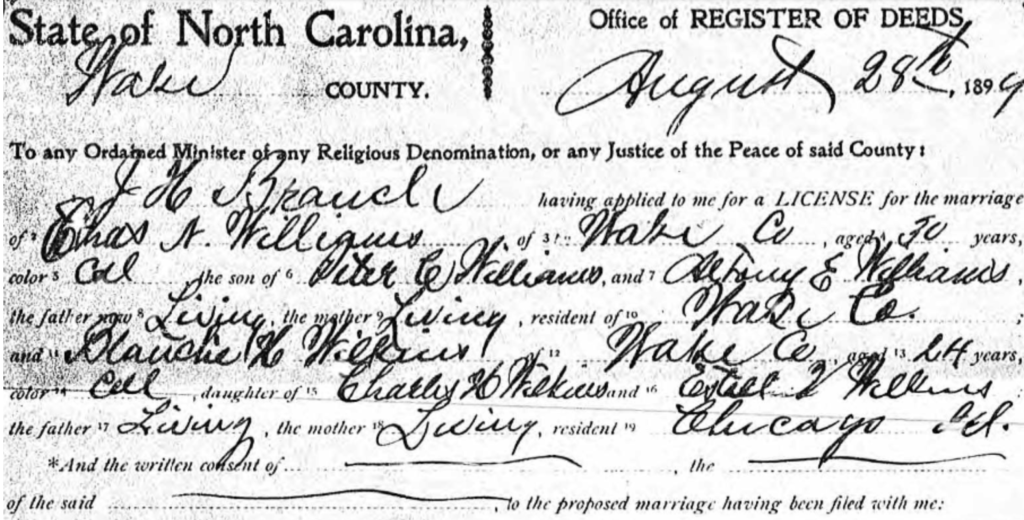 State of North Carolina, Office of REGISTER OF DEEDS,
Wake COUNTY. August 28th, 1899
To any Ordained Minister of any Religious Denomination, or any Justice of the Peace of said County:
J H Branch having applied to me for a LICENSE for the marriage
of Chas N. Williams of Wake Co, aged 30 years,
color 5 Col the son of 6 Peter C Williams, and 7 E Williams,
the father now 8 Living, the mother 9 Living, resident of 10 Wake Co. ;
and 11 Blanche H Wilkins of 12 Wake Co, aged 13 24 years,
color 14 Col, daughter of 15 Charles H Wilkins and 16 Wilkins
the father 17 Living, the mother 18 Living, resident 19 Chicago
*And the written consent of , the
of the said , to the proposed marriage having been filed with me: